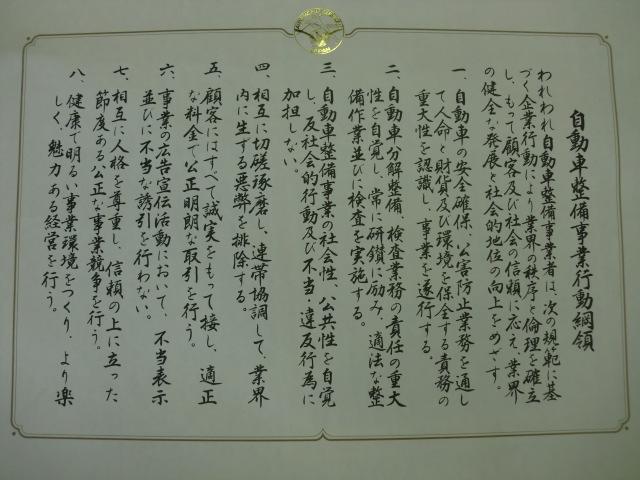 自動車整備事業行動綱領
われわれ自動車整備事業者は、次の規範に基
づく企業行動により業界の秩序と倫理を確立
し、もって顧客及び社会の信頼に応え、業界
の健全な発展と社会的地位の向上をめざす。
一、自動車の安全確保、公害防止業務を通し
て人命と財貨及び環境を保全する責務の
重大性を認識し、事業を遂行する。
二、自動車分解整備、検査業務の責任の重大
性を自覚し、常に研鑽に励み、適法な整
備作業並びに検査を実施する。
三、自動車整備事業の社会性、公共性を自覚
し、反社会的行動及び不当、違反行為に
加担しない。
四、相互に切磋琢磨し、連帯協調して、業界
内に生ずる悪弊を排除する。
五、顧客にはすべて誠実をもって接し、適正
な料金で公正明朗な取引を行う。
六、事業の広告宣伝活動において、不当表示
並びに不当な誘引を行わない。
七、相互に人格を尊重し、信頼の上に立った
節度ある公正な事業競争を行う。
八、健康で明るい事業環境をつくり、より楽
しく、魅力ある経営を行う。